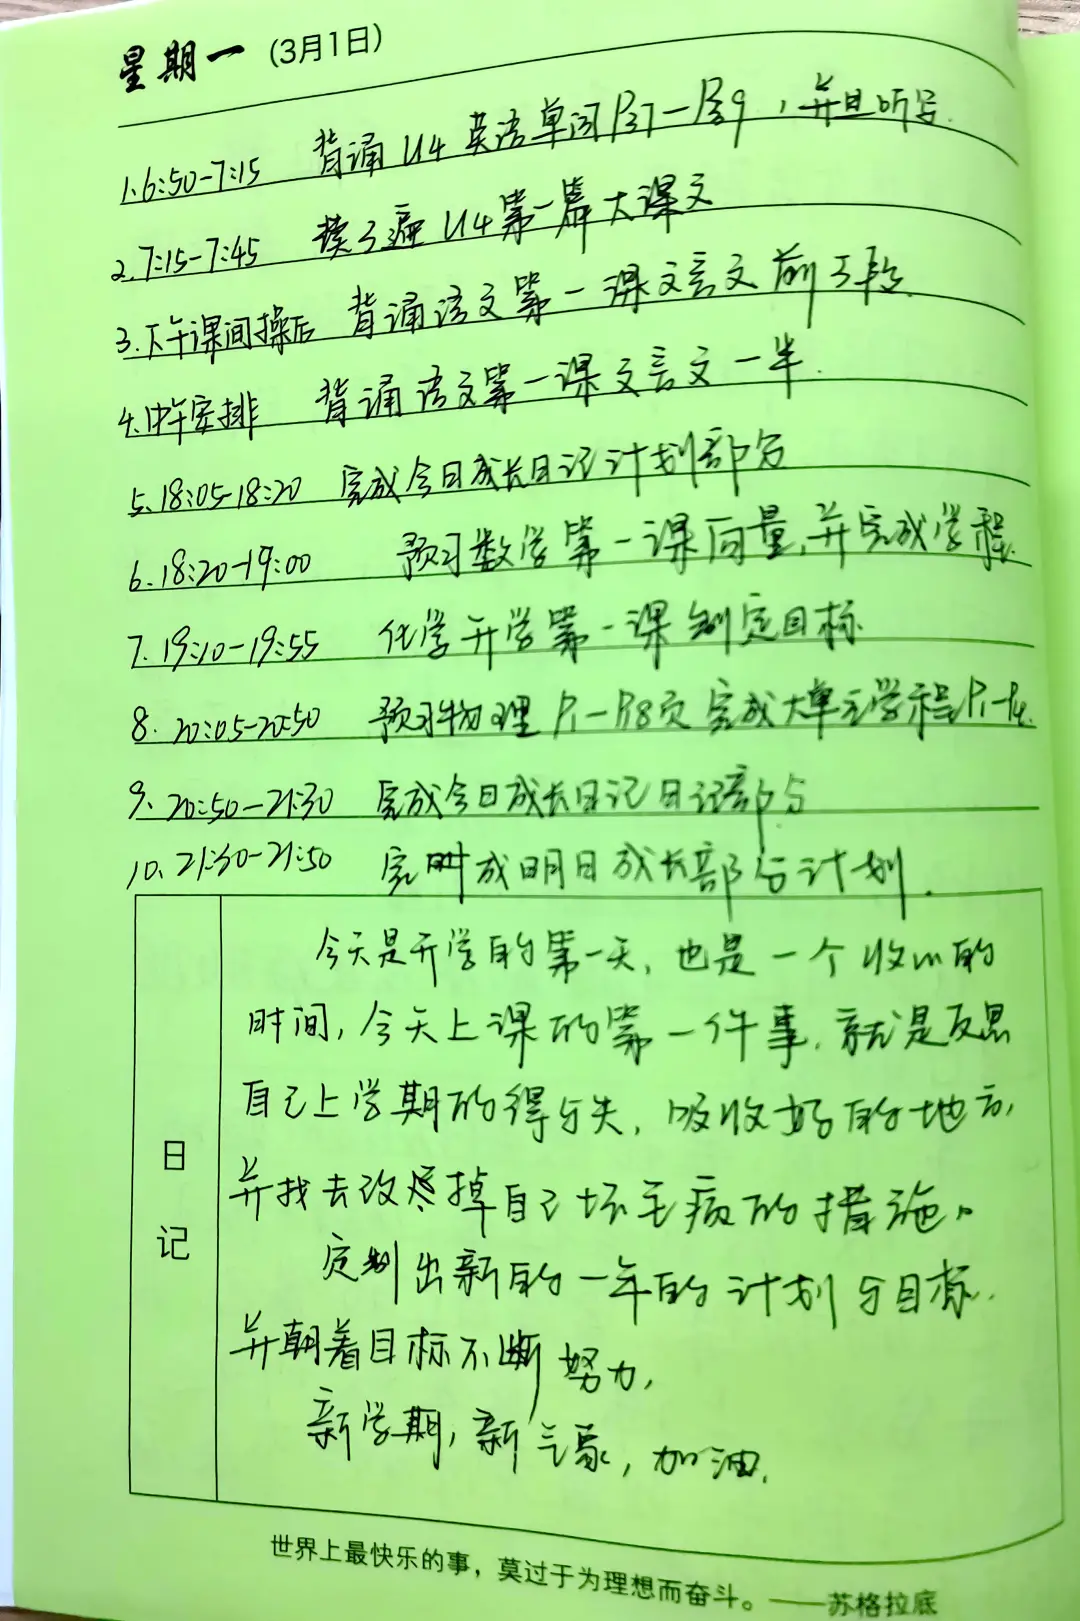 星期一 (3月1日)
1.6:50-7:15 背诵U4英语单词P37-P39，并且听写.
2.7:15-7:45 读3遍U4第一篇大课文
3.下午课间操后 背诵语文第一课文言文前3段.
4.中午安排 背诵语文第一课文言文一半.
5.18:05-18:20 完成今日成长日记计划部分
6.18:20-19:00 预习数学第一课向量,并完成学程.
7.19:10-19:55 化学开学第一课制定目标.
8.20:05-20:50 预习物理P1-P18页 完成大单元学程P1-P4.
9.20:50-21:30 完成今日成长日记日记部分
10.21:30-21:50 完成明日成长部分计划.
日记
今天是开学的第一天,也是一个收心的
时间,今天上课的第一件事.就是反思
自己上学期的得与失,吸收好的地方,
并找去改掉自己坏毛病的措施。
定制出新的一年的计划与目标.
并朝着目标不断努力,
新学期,新气象,加油.
世界上最快乐的事，莫过于为理想而奋斗。——苏格拉底